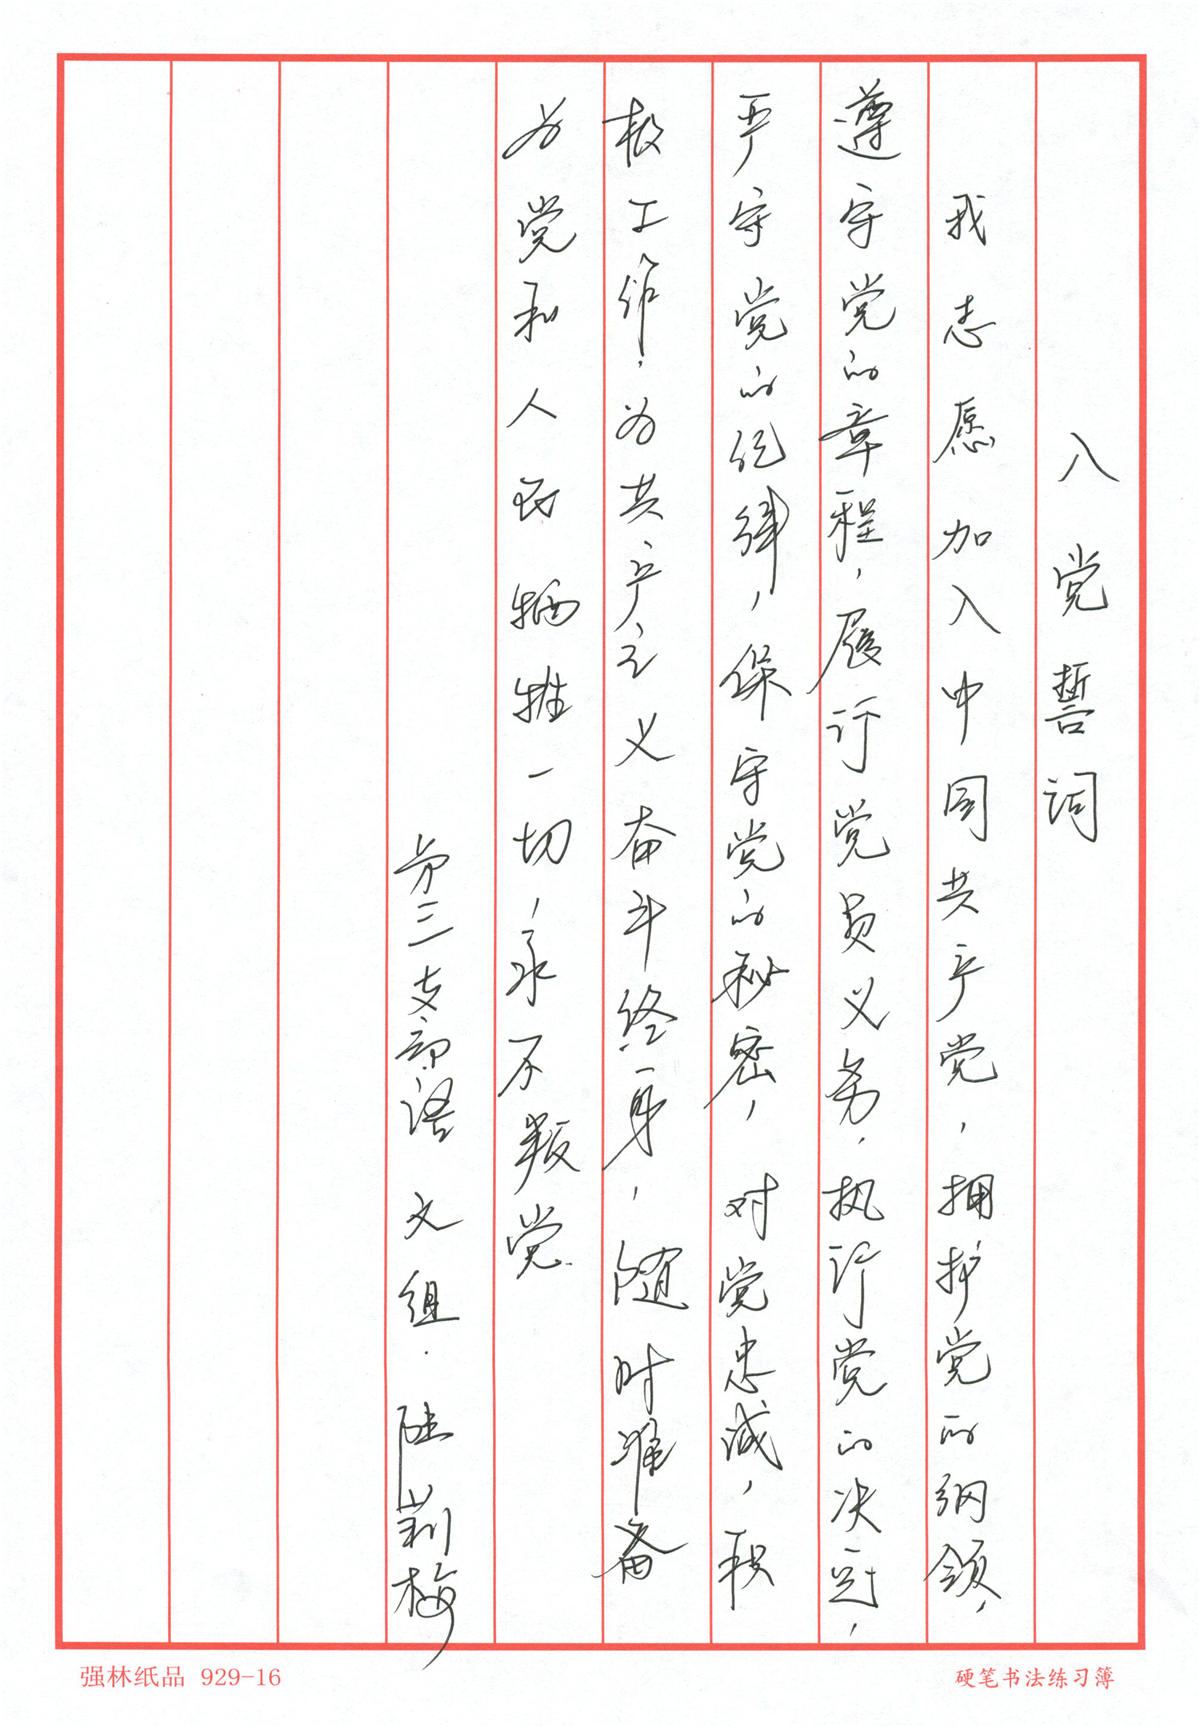 入党誓词
我志愿加入中国共产党，拥护党的纲领，
遵守党的章程，履行党员义务，执行党的决定，
严守党的纪律，保守党的秘密，对党忠诚，积
极工作，为共产主义奋斗终身，随时准备
为党和人民牺牲一切，永不叛党.
第三支部语文组．陆莉梅
强林纸品 929-16
硬笔书法练习簿